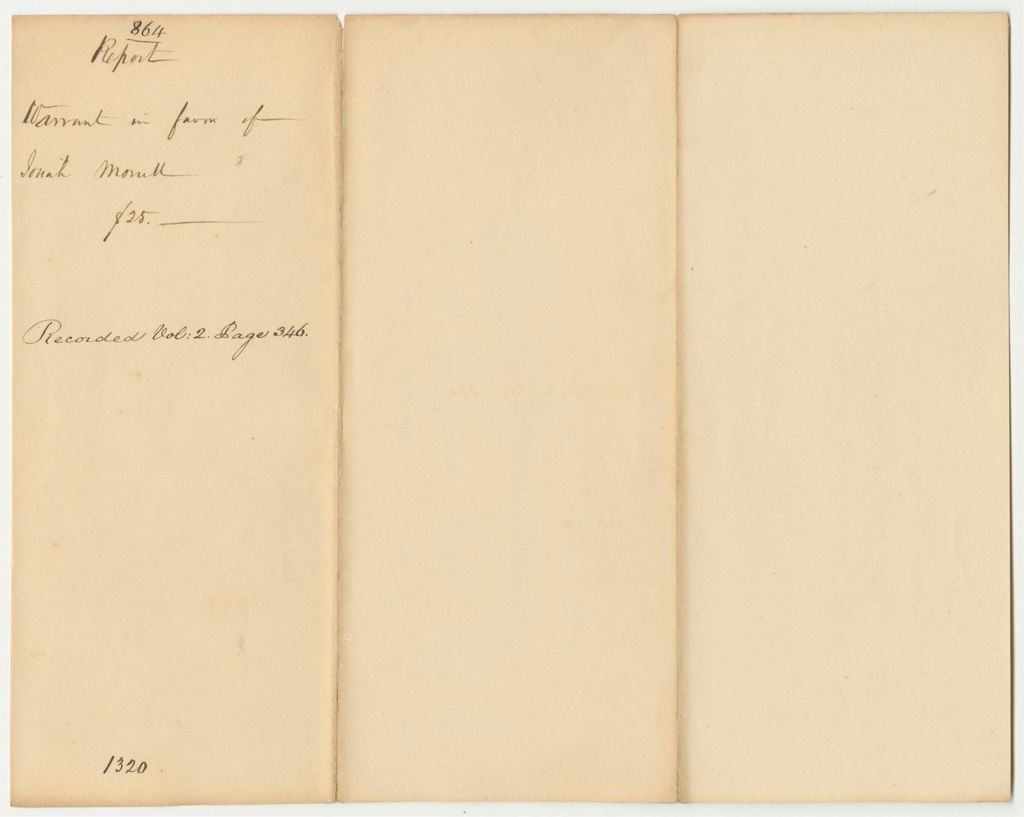 864
Report
Warrant in favor of
Josiah Morrill
$25.
Recorded Vol: 2. Page 346.
1320